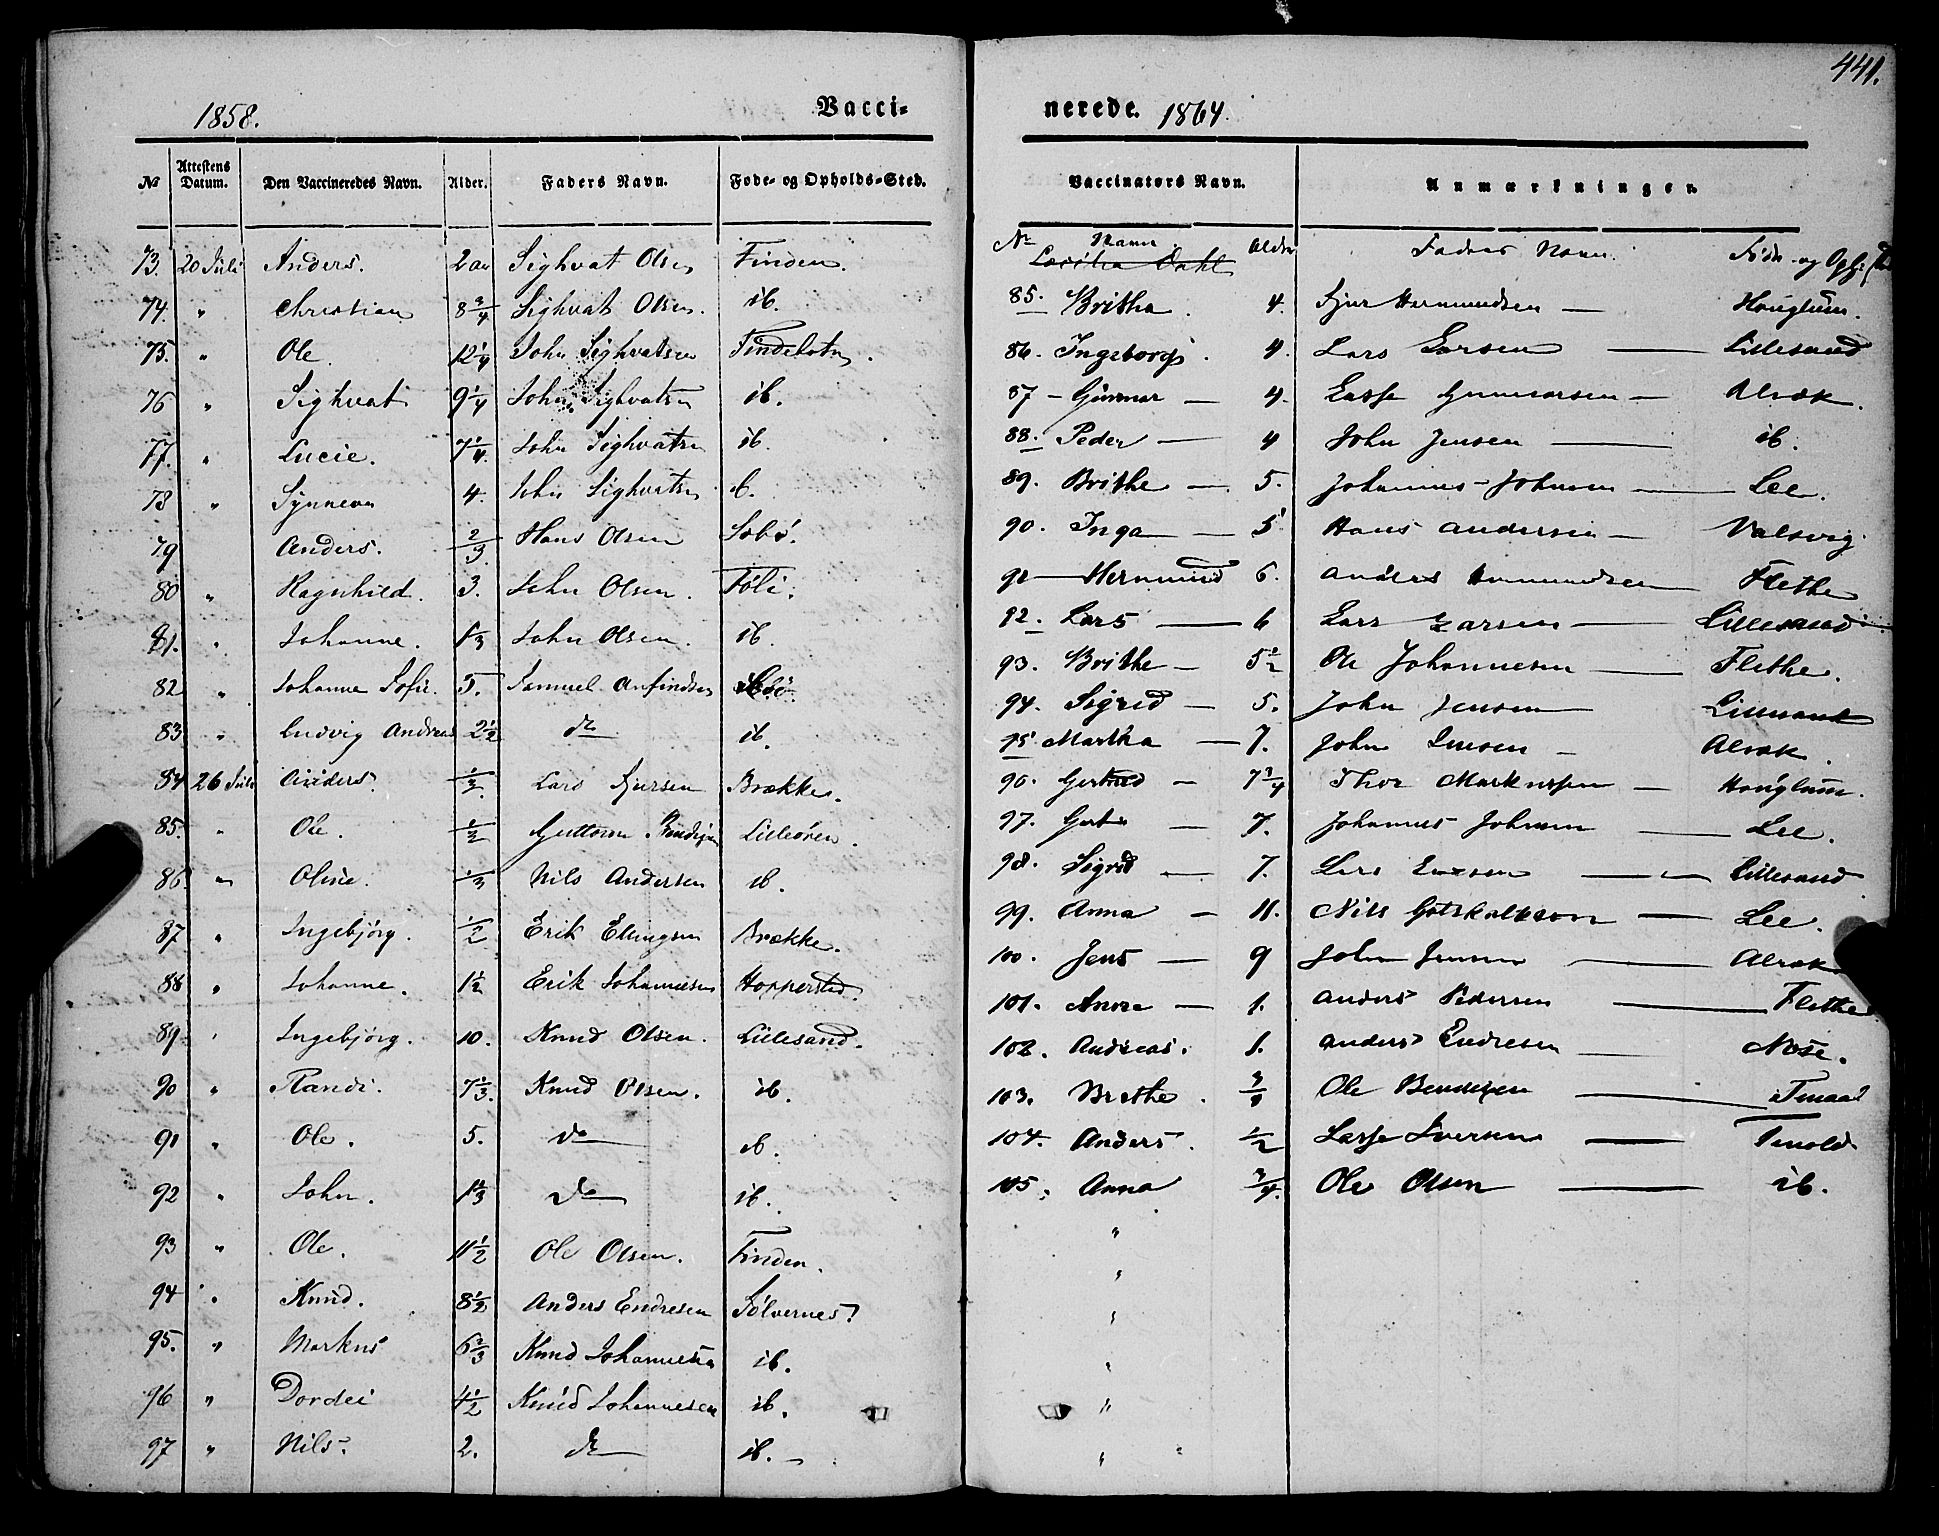 441.
1858.
Vacci-
nerede. 1864.
№ Attestens Datum. Den Vaccineredes Navn. Alder. Faders Navn. Føde- og Opholds-Sted.
73. 20 Juli Anders. 2 aar Sighvat Olsen Finden.
74. " Christian 8 3/4 Sighvat Olsen. ib.
75. " Ole 12 1/4 John Sighvatsen Findebotn.
76 " Sighvat 9 1/4 John Sighvatsn ib.
77. " Lucie. 7 1/4. John Sighvatsn ib.
78 " Synneva 4. John Sighvatsn ib.
79 Anders. 2/3 Hans Olsen Sæbø.
80 " Ragnhild. 3. John Olsen. Føli.
81. " Johanne. 1/3 John Olsen. ib.
82 " Johanne Sofie. 5. Samuel Anfindsen
83 " Ludvig Andreas 2 1/2 do ib.
84 26 Juli Anders. 1/3. Lars Sjursen Brække.
85. " Ole. 1/2 Guttorm Lilleøren.
86. " Oline. 1/3 Nils Andersen ib.
87 " Ingebjørg. 1/2 Erik Ellingsen Brække.
88 " Johanne. 1 1/2 Erik Johannesen Hopperstad.
89 " Ingebjørg. 10. Knud Olsen. Lillesand.
90 " Randi. 7 1/3. Knud Olsen. ib.
91 " Ole. 5. do ib.
92 " John. 1 2/3 do ib.
93 " Ole. 11 1/2 Ole Olsen. Finden.
94 " Knud. 8 1/2 Anders Endresen Sølvernes.
95. " Markus 6 2/3 Knud Johannesen ib.
96 " Dordei 4 1/2 Knud Johannesen ib.
97 " Nils. 2. do ib.
Vaccinators Navn. Anmærkninger.
No Navn Alder Faders Navn. Føde- og Oph: Sted
Dahl
85. Britha 4. Sjur Hermundsen Houglum.
86. Ingeborg. 4. Lars Larsen Lillesand
87 - Gunnar 4. Lasse Gunnarsen Alræk.
88. Peder 4 John Jensen ib.
89. Brithe 5. Johannes Johnsen Lee.
90. Inga 5 Hans Andersen Valsvig.
91 Hermund 6. Anders Flethe
92. Lars 6 Lars Larsen Lillesand
93. Brithe 5 1/2 Ole Johannesen Flethe.
94. Sigrid 5. John Jensen Lillesand
95 Martha 7. John Jensen Alræk.
96. Gertrud 7 3/4 Thor Markussen Houglum.
97. 7. Johannes Johnsen Lee.
98. Sigrid 7. Lars Larsen Lillesand
99. Anna 11. Nils Gotskalkson Lee.
100. Jens 9 John Jensen Alræk
101. Anna 1. Anders Pedersen Flethe
102. Andreas. 1. Anders Endresen Nøse.
103. Brethe. Ole Bendixen
104. Anders. 1/2 Lasse Iversen Tenold
105. Anna 3/4. Ole Olsen ib.
"
"
"
"
"
"